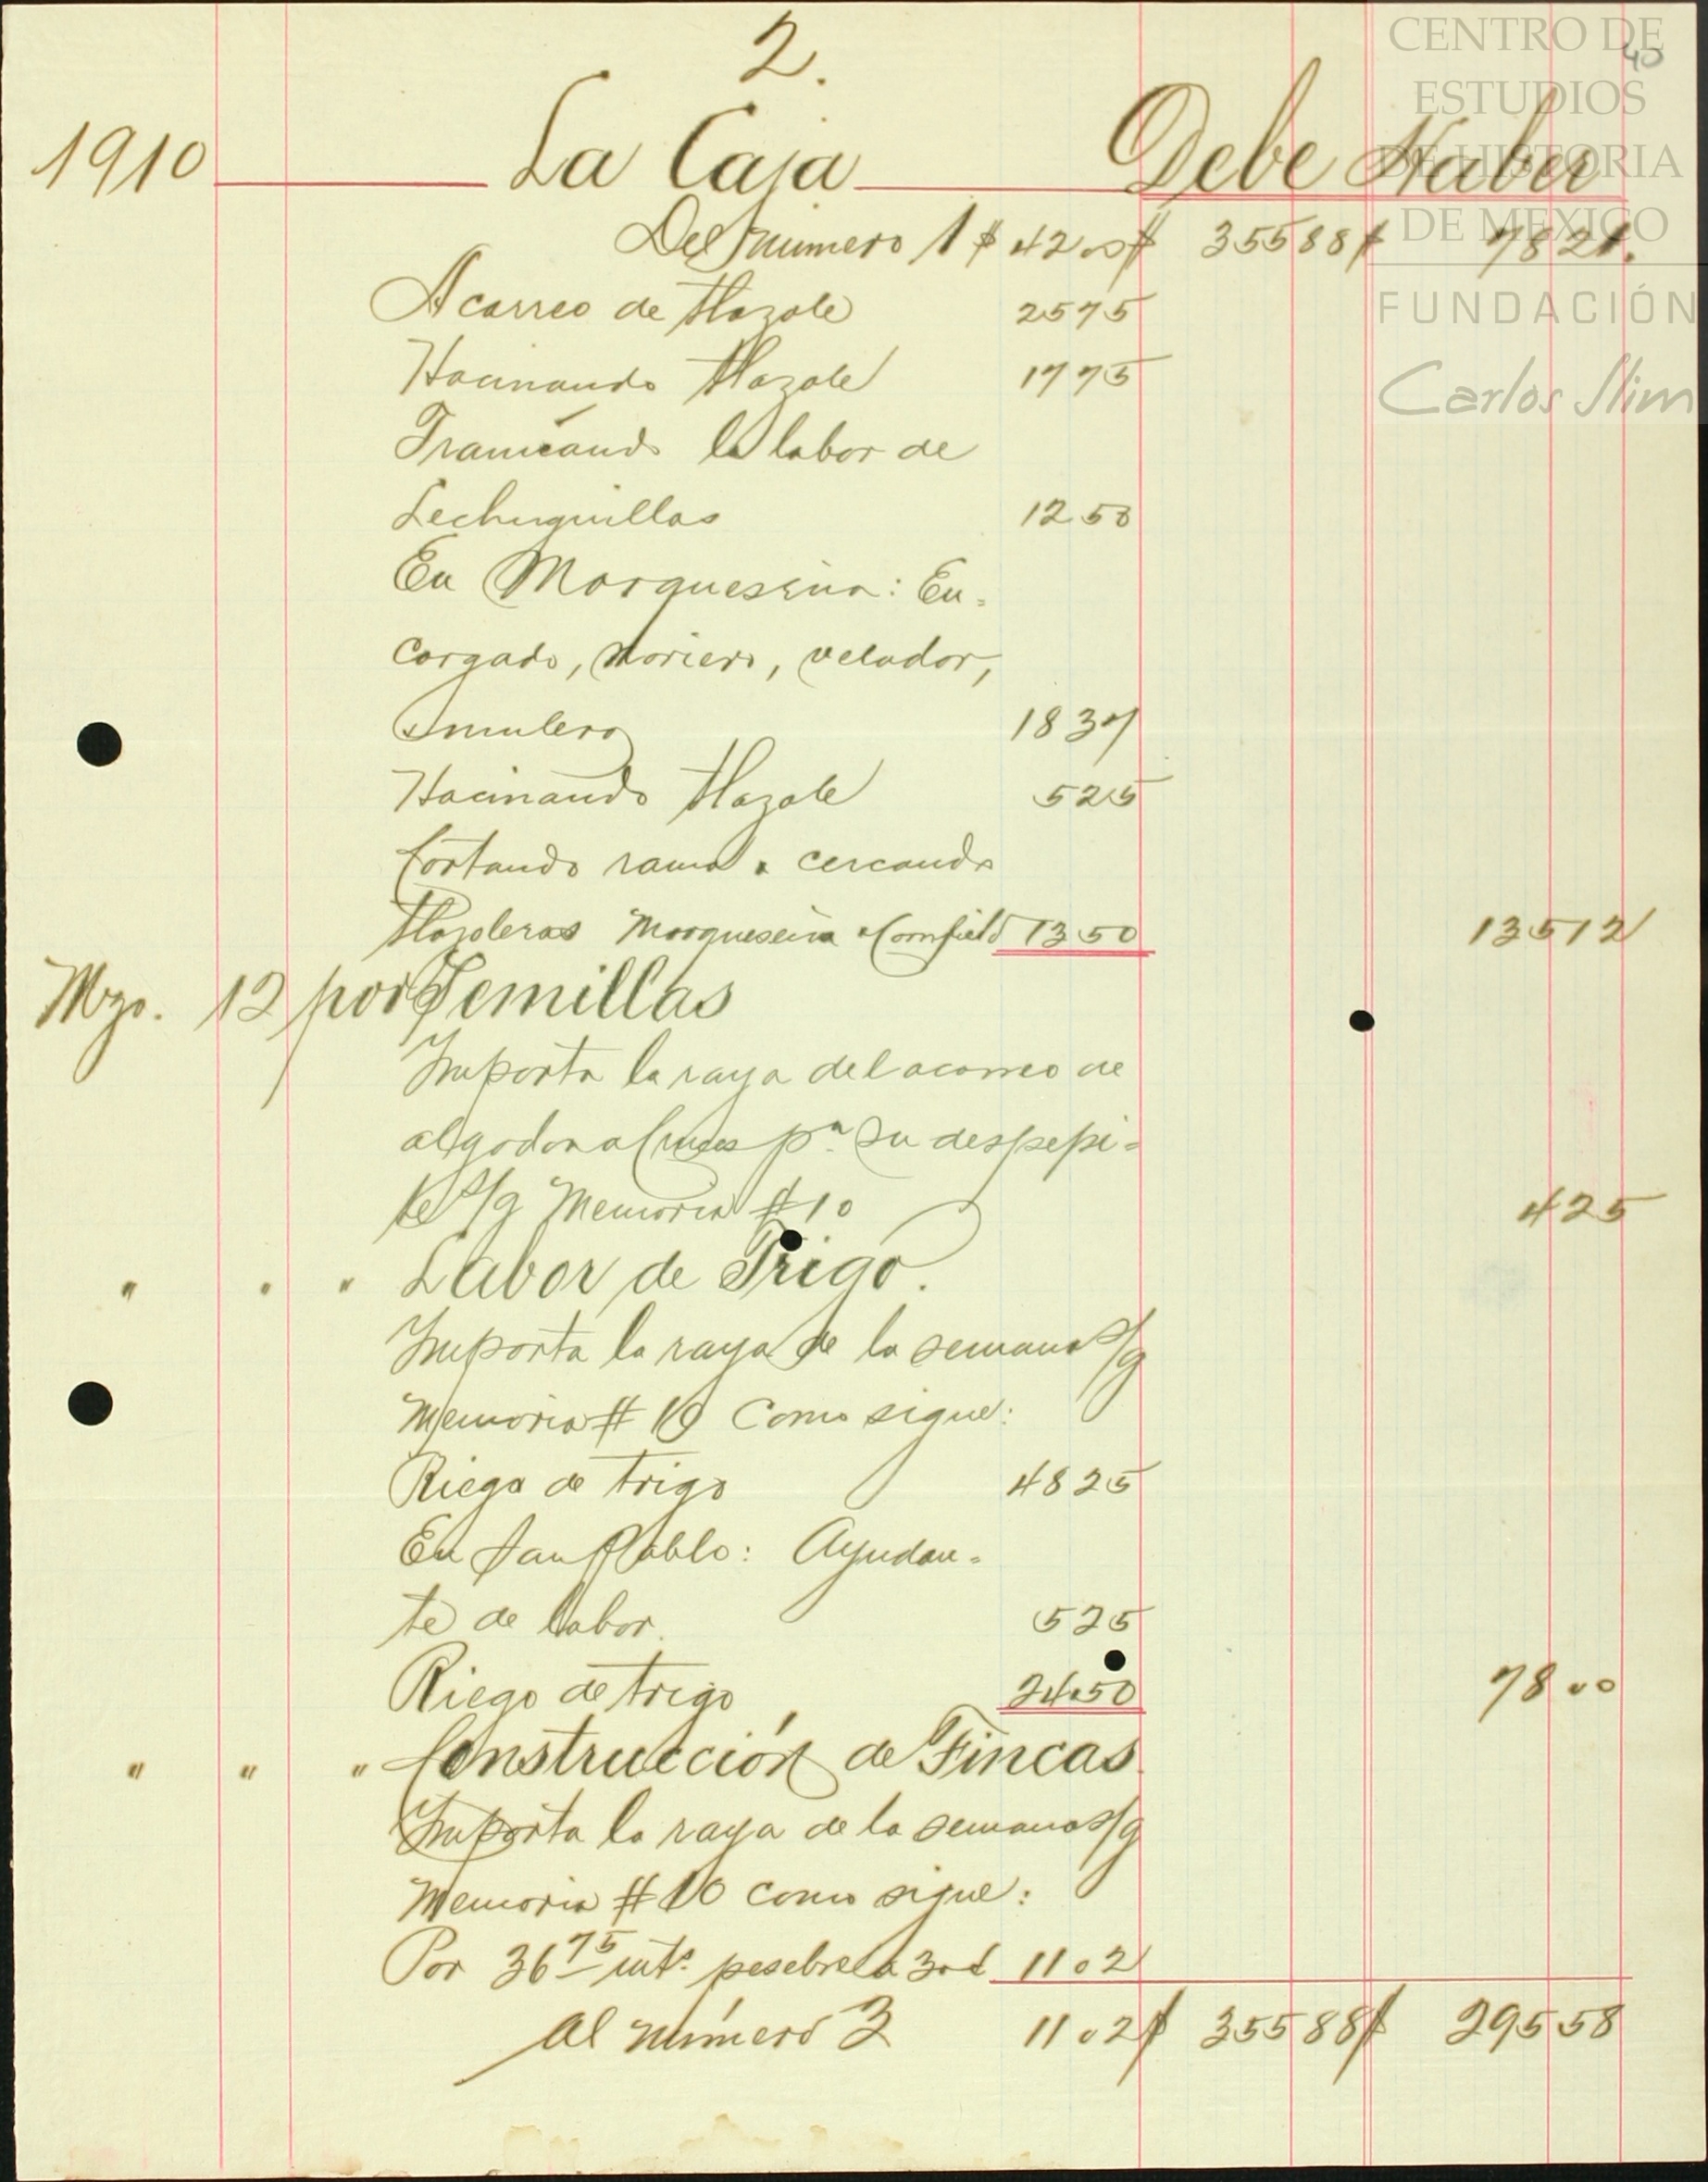 CENTRO DE
ESTUDIOS
DE HISTORIA
DE MEXICO
FUNDACIÓN
Carlos Slim
40
2.
1910 La Caja Debe Haber
Del número 1 $ 42.00 $ 355 88 $ 78 21.
Acarreo de tlazole 25 75
Hacinando tlazole 17 75
la labor de
Lechuguillas 12 50
En Marqueseña: En=
cargado, noriero, velador,
mulero 18 37
Hacinando tlazole 5 25
Cortando rama cercando
tlazoleras Marqueseña Cornfield 13 50 135 12
Mzo. 12 por Semillas
Importa la raya del acarreo de
algodon a pª su despepi=
te s/g Memoria #10 4 25
" " " Labor de Trigo.
Importa la raya de la semana s/g
Memoria # 10 como sigue:
Riego de trigo 48 25
En San Pablo: Ayudan=
te de labor. 5 25
Riego de trigo 24.50 78 00
" " " Construcción de Fincas
Importa la raya de la semana s/g
Memoria #10 como sigue:
Por 36 75 mts. pesebre a 30¢ 11 02
Al número 3 11 02 $ 355 88 $ 295 58